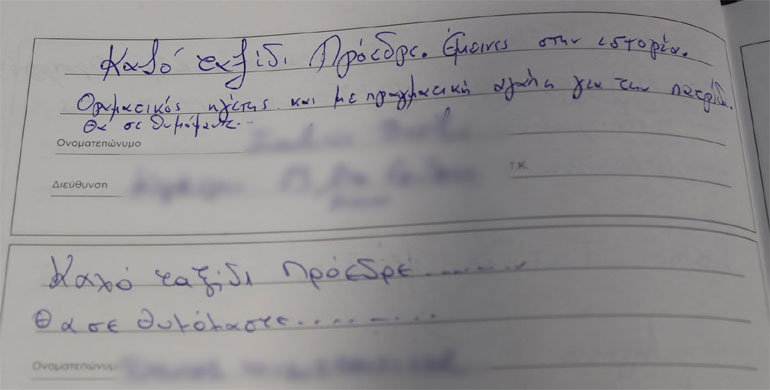 Καλό ταξίδι Πρόεδρε. Έμεινες στην ιστορία.
Οραματικός ηγέτης και με πραγματική αγάπη για την πατρίδ.
Θα σε θυμόμαστε...
Ονοματεπώνυμο
Διεύθυνση
Τ.Κ.
Καλό ταξίδι Πρόεδρε.........
Θα σε θυμόμαστε.........
Ονοματεπώνυμ